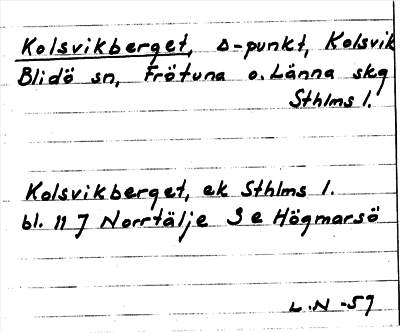 Kolsvikberget, Δ-punkt, Kolsvik
Blidö sn, Frötuna o. Länna skg
Sthlms l.
Kolsvikberget, ek Sthlms l.
bl. 11 J Norrtälje 3 e Högmarsö
L.N -57